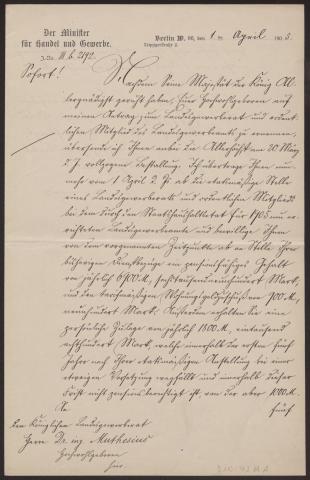 Der Minister
für Handel und Gewerbe.
Berlin W. 66, den 1. ten April 1905.
Leipzigerstraße 2.
J.-No. III b. 2192.
Sofort!
Nachdem Seine Majestät der König Al-
lergnädigst geruht haben, Euer Hochwohlgeboren auf
meinen Antrag zum Landesgewerberat und ordent-
lichen Mitglied des Landesgewerbeamts zu ernennen,
übersende ich Ihnen anbei die Allerhöchst am 20 März
d. J. vollzogene Bestallung. Ich übertrage Ihnen nun-
mehr vom 1 April d. Js. ab die etatsmäßige Stelle
eines Landesgewerberats und ordentlichen Mitglieds
bei dem durch den Staatshaushaltsetat für 1905 neu er-
richteten Landesgewerbeamte und bewillige Ihnen
von dem vorgenannten Zeitpunkte ab an Stelle Ihrer
bisherigen Dienstbezüge ein pensionsfähiges Gehalt
von jährlich 6900 M., sechstausendneunhundert Mark,
und den tarifmäßigen Wohnungsgeldzuschuß von 900 M.,
neunhundert Mark. Außerdem erhalten Sie eine
persönliche Zulage von jährlich 1800 M., eintausend
achthundert Mark, welche innerhalb der ersten fünf
Jahre nach Ihrer etatsmäßigen Anstellung bei einer
etwaigen Versetzung wegfällt und innerhalb dieser
Frist nicht pensionsberechtigt ist, von der aber 1000 M.
An
fünf
den Königlichen Landesgewerberat
Herrn Dr. ing. Muthesius
Hochwohlgeboren
hier.